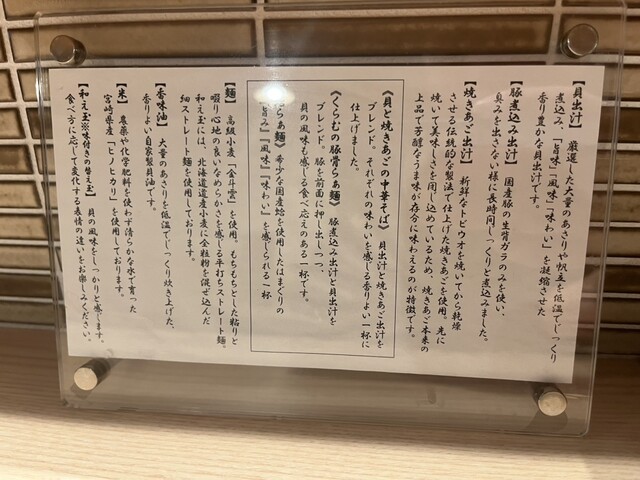 【貝出汁】 厳選した大量のあさりや帆立を低温でじっくり
煮込み、「旨味」「風味」「味わい」を凝縮させた
香り豊かな貝出汁です。
【豚煮込み出汁】 国産豚の生背ガラのみを使い、
臭みを出さない様に長時間じっくりと煮込みました。
【焼きあご出汁】 新鮮なトビウオを焼いてから乾燥
させる伝統的な製法で仕上げた焼きあごを使用。先に
焼いて美味しさを閉じ込めているため、焼きあご本来の
上品で芳醇なうま味が存分に味わえるのが特徴です。
《貝と焼きあごの中華そば》 貝出汁と焼きあご出汁を
ブレンド。それぞれの味わいを感じる香りよい一杯に
仕上げました。
《くらむの豚骨らぁ麺》 豚煮込み出汁と貝出汁を
ブレンド。豚を前面に押し出しつつ、
貝の風味も感じる食べ応えのある一杯です。
らぁ麺》 希少な国産蛤を使用したはまぐりの
旨み」「風味」「味わい」を感じられる一杯
【麺】 高級小麦「金斗雲」を使用。もちもちとした粘りと
啜り心地の良いなめらかさを感じる平打ちストレート麺。
和え玉には、北海道道産小麦に全粒粉を混ぜ込んだ
細ストレート麺を使用しております。
【香味油】 大量のあさりを低温でじっくり炊き上げた、
香りよい自家製貝油です。
【米】 農薬や化学肥料を使わず清らかな水で育った
宮崎県産「ヒノヒカリ」を使用しております。
【和え玉※味付きの替え玉】 貝の風味をしっかりと感じます。
食べ方に応じて変化する表情の違いをお楽しみください。